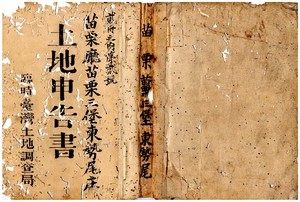 苗栗廳苗栗三堡東勢尾庄
土地申告書
臨時臺灣土地調查局
苗栗
苗栗三堡
東勢尾